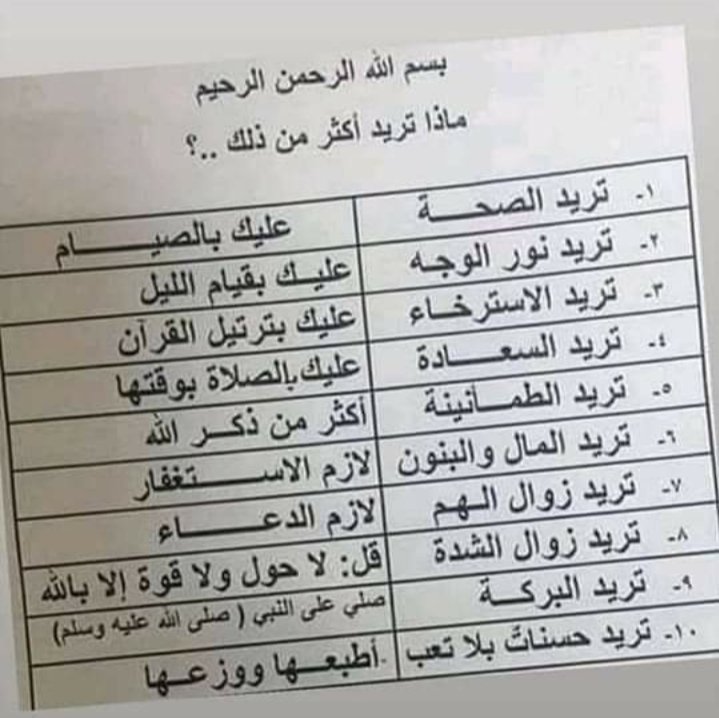 بسم الله الرحمن الرحيم
ماذا تريد أكثر من ذلك ..؟
١- تريد الصحـــة عليك بالصيـــــام
٢- تريد نور الوجـه عليـك بقيام الليل
٣- تريد الاسترخـاء عليك بترتيل القرآن
٤- تريد السعــــادة عليك بالصلاة بوقتها
٥- تريد الطمــأنينة أكثر من ذكـر الله
٦- تريد المال والبنون لازم الاســــتغفار
٧- تريد زوال الـهم لازم الدعــــــاء
٨- تريد زوال الشدة قل: لا حول ولا قوة إلا بالله
٩- تريد البركـــة صلي على النبي ( صلى الله عليه وسلم)
١٠- تريد حسنات بلا تعب أطبعــها ووزعــها